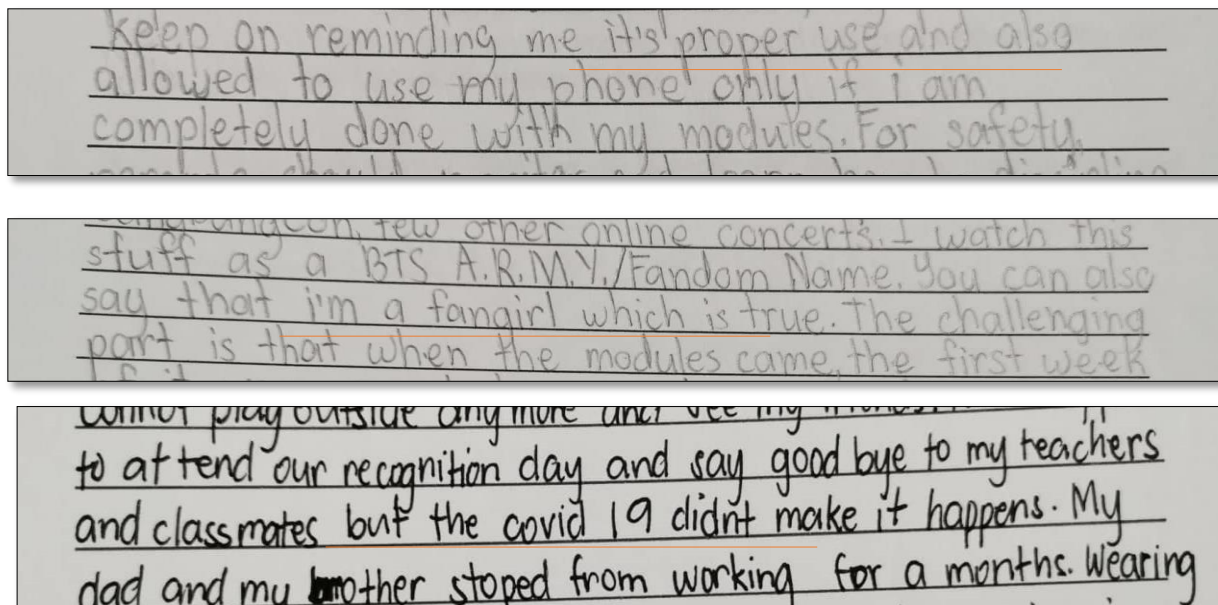 keep on reminding me it's proper use and also
allowed to use my phone only if i am
completely done with my modules. For safety,
few other online concerts. I watch this
stuff as a BTS A.R.M.Y./Fandom Name. You can also
say that i'm a fangirl which is true. The challenging
part is that when the modules came, the first week
cannot play outside any more and see my
to attend our recognition day and say good bye to my teachers
and classmates but the covid 19 didn't make it happens. My
dad and my brother stoped from working for a months. Wearing